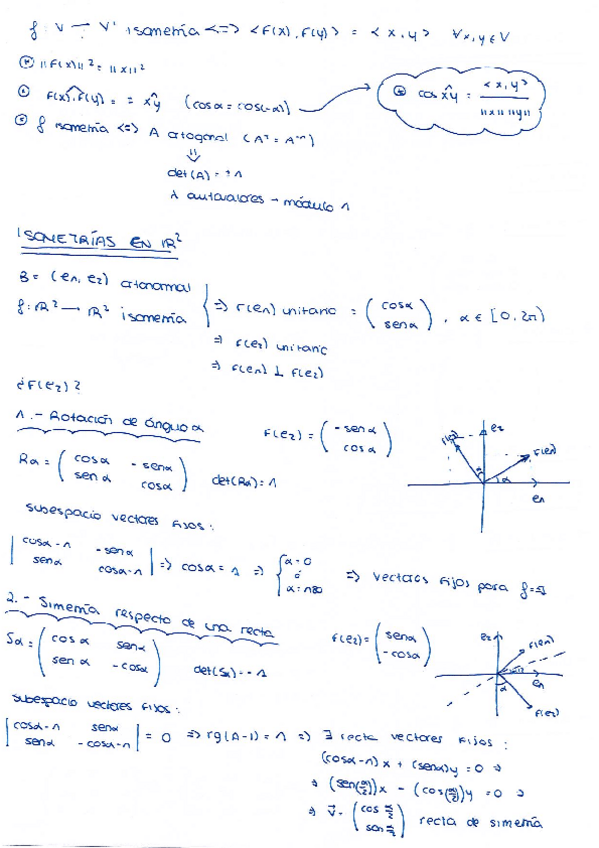 f: V → V' isometría <=> <f(x), f(y)> = <x, y> ∀x,y ∈ V
||f(x)||² = ||x||²
f(x),f(y) = ± xy (cosα = cos(-α))
cos xy = <x, y> / ||x|| ||y||
f isometría <=> A ortogonal (Aᵗ = A⁻¹)
⇓
det(A) = ±1
λ autovalores → módulo 1
ISOMETRÍAS EN IR²
B = (e1, e2) ortonormal
f: IR² → IR² isometría
=> f(e1) unitario = (cosα senα), α ∈ [0, 2π)
=> f(e2) unitario
=> f(e1) ⊥ f(e2)
¿f(e2)?
1.- Rotación de ángulo α
f(e2) = (-senα cosα)
Rα = (cosα -senα senα cosα) det(Rα) = 1
e2
f(e2)
f(e1)
α
e1
subespacio vectores fijos:
|cosα-1 -senα senα cosα-1| => cosα = 1 => {α=0 ó α=180 => vectores fijos para f=
2.- Simetría respecto de una recta
Sα = (cosα senα senα -cosα) det(Sα) = -1
f(e2) = (senα -cosα)
e2
f(e1)
α
e1
f(e2)
subespacio vectores fijos:
|cosα-1 senα senα -cosα-1| = 0 => rg(A-I) = 1 => ∃ recta vectores fijos:
(cosα-1)x + (senα)y = 0 =>
=> (sen(α/2))x - (cos(α/2))y = 0 =>
=> v = (cos α/2 sen α/2) recta de simetría